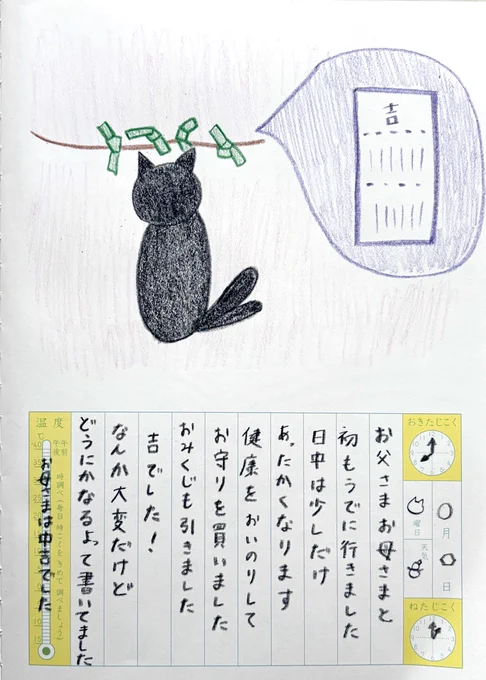 吉
おきたじこく
月
日
曜日
天気
ねたじこく
お父さまお母さまと
初もうでに行きました
日中は少しだけ
あったかくなります
健康をおいのりして
お守りを買いました
おみくじも引きました
吉でした!
なんか大変だけど
どうにかなるよって書いてました
お母さまは中吉でした
温度
午前
午後
時調べ(毎日時こくをきめて調べましょう)